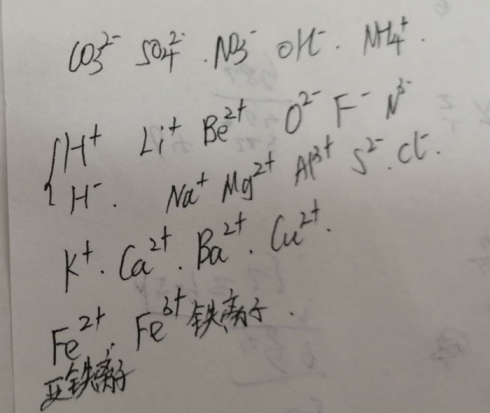 CO3²⁻ SO4²⁻. NO3⁻ OH⁻. NH4⁺.
{H⁺ Li⁺ Be²⁺ O²⁻ F⁻ N³⁻
H⁻. Na⁺ Mg²⁺ Al³⁺ S²⁻. Cl⁻.
K⁺. Ca²⁺. Ba²⁺. Cu²⁺.
Fe²⁺. Fe³⁺ 铁离子.
亚铁离子